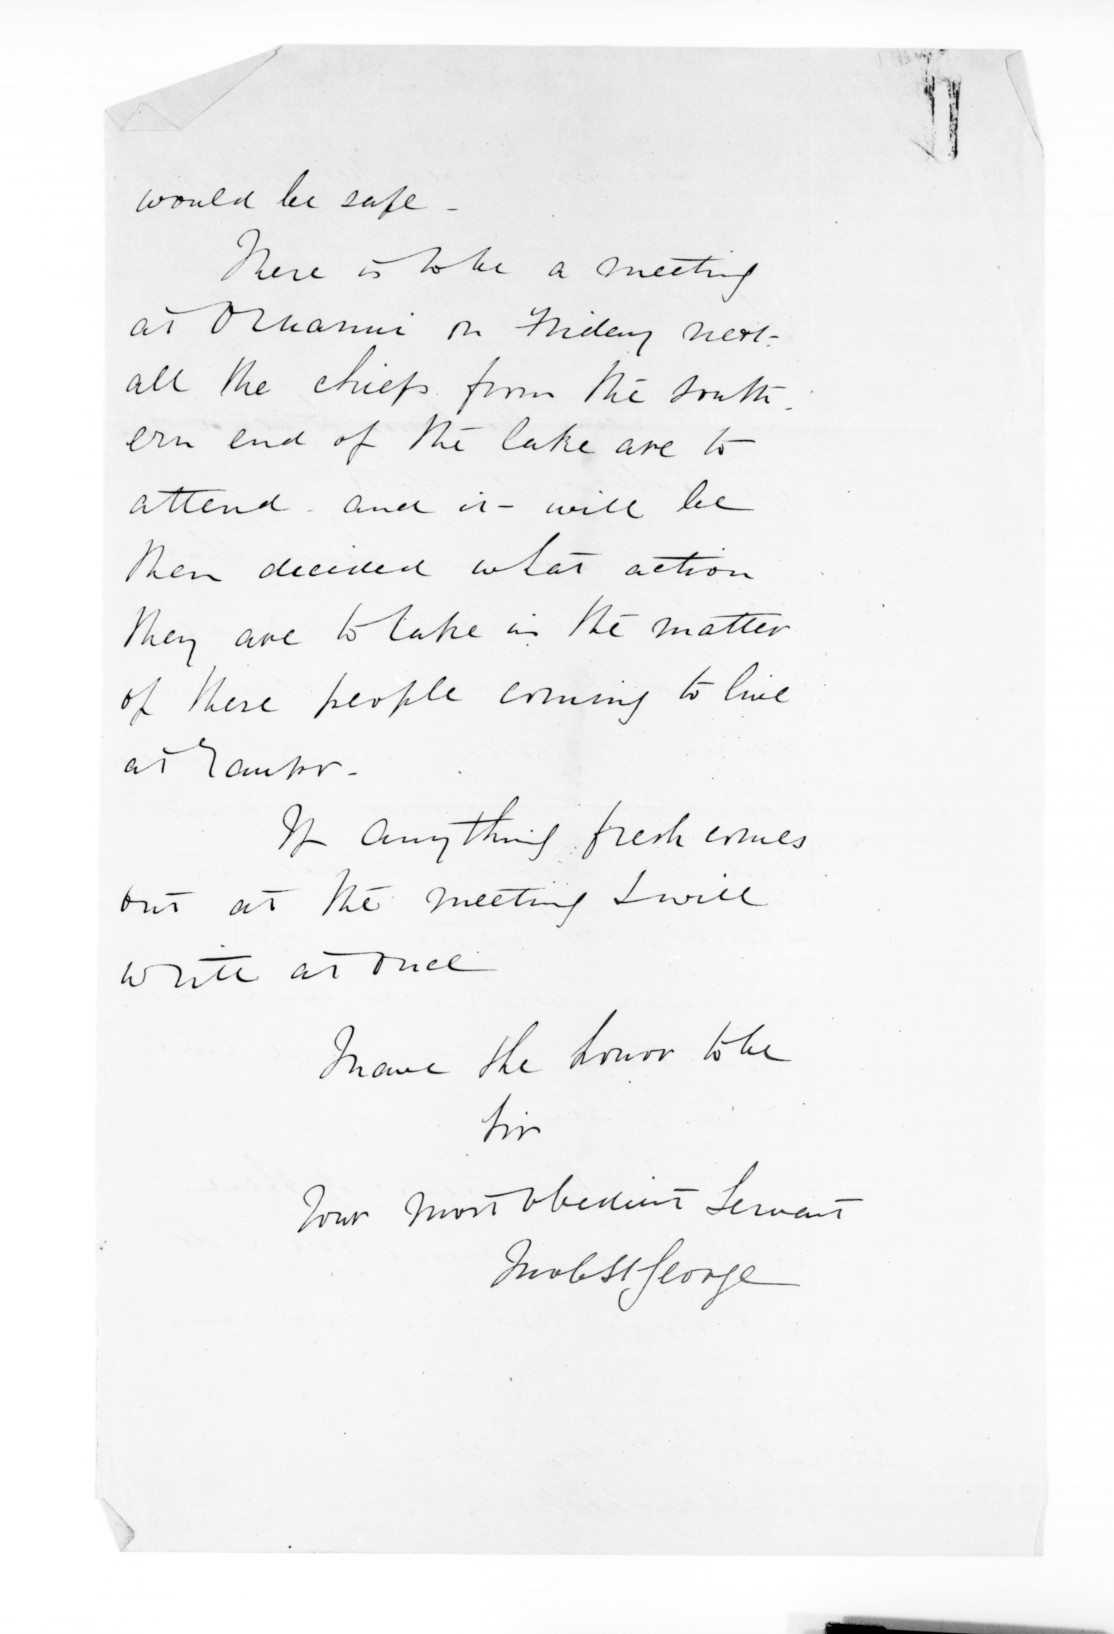 would be safe -
There is to be a meeting
at Oruanui on Friday next -
all the chiefs from the south
ern end of the lake are to
attend - and it will be
then decided what action
they are to take in the matter
of these people coming to live
at Taupo -
If anything fresh comes
out at the meeting I will
write at once
I have the honor to be
Sir
Your Most Obedient Servant
St George